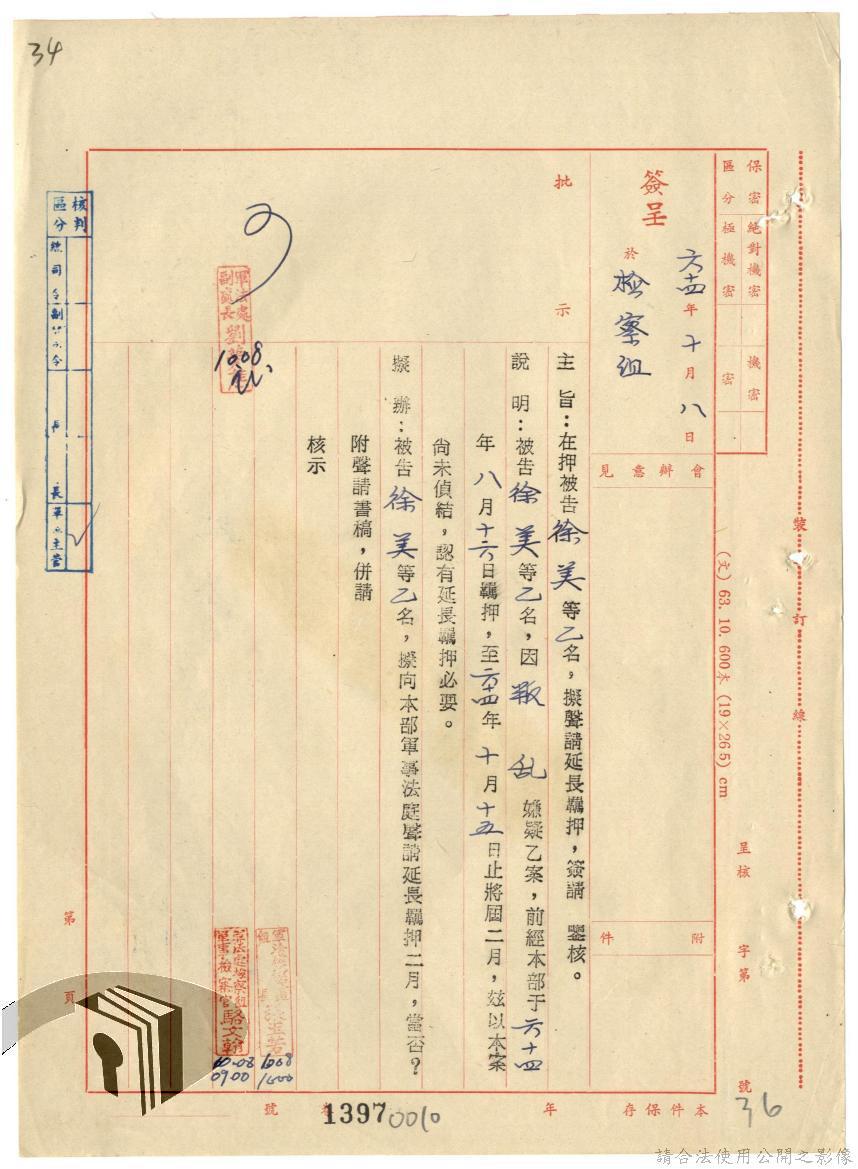 34
保密區分
絕對機密
極機密
機密
密
簽呈
六十四年十月八日
於檢察組
批示
會辦意見
附件
裝訂線
(文) 63. 10. 600本 (19×26.5) cm
呈核 字第 號
主旨：在押被告徐美等乙名，擬聲請延長羈押，簽請 鑒核。
說明：被告徐美等乙名，因叛乱嫌疑乙案，前經本部于六十四
年八月十六日羈押，至六十四年十月十五日止將屆二月，茲以本案
尚未偵結，認有延長羈押必要。
擬辦：被告徐美等乙名，擬向本部軍事法庭聲請延長羈押二月，當否？
附聲請書稿，併請
核示
可
軍法處副處長劉
1008
軍事檢察官駱文翰
10-08
0900
1008
1000
核判區分
總司令
主管
第 頁
本件保存 年
號
1397
0010
36
請合法使用公開之影像